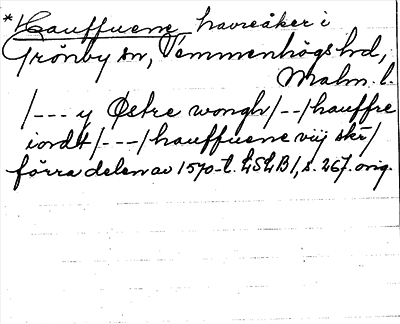 *Hauffuene, havreåker i
Grönby sn, Vemmenhögs hd,
Malm. l.
/--- y Østre wongh/--/hauffre
iordt/---/hauffuene viij skr/
förra delen av 1570-t. LSLB1, s. 267. orig.